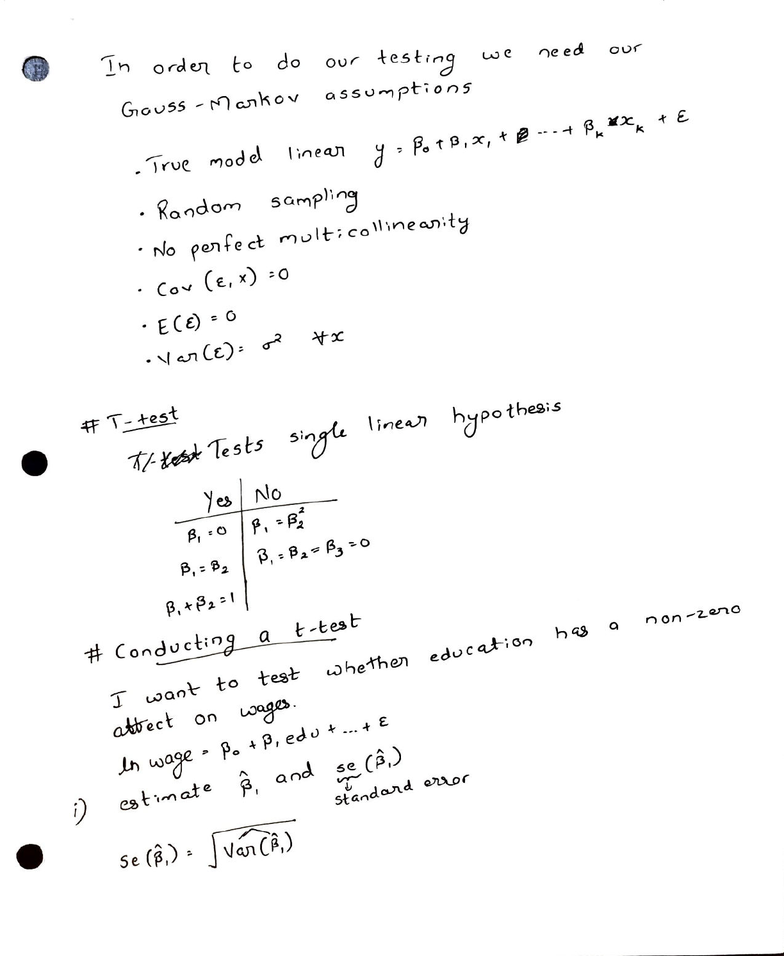 In order to do our testing we need our
Gauss-Markov assumptions
· True model linear y = β₀ + β₁x₁ + ... + βₖxₖ + ε
· Random sampling
· No perfect multicollinearity
· Cov (ε, x) = 0
· E(ε) = 0
· Var(ε) = σ² ∀x
# T-test
Tests single linear hypothesis
Yes | No
β₁ = 0 | β₁ = β₂²
β₁ = β₂ | β₁ = β₂ = β₃ = 0
β₁ + β₂ = 1
# Conducting a t-test
I want to test whether education has a non-zero
affect on wages.
ln wage = β₀ + β₁ edu + ... + ε
i) estimate β̂₁ and se (β̂₁)
standard error
se (β̂₁) = √Var(β̂₁)